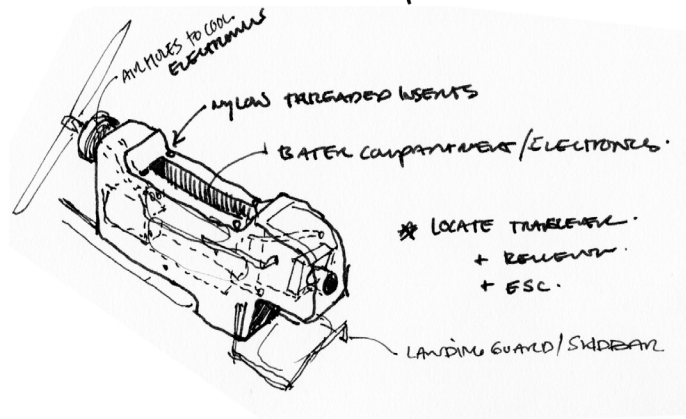 AIR HOLES TO COOL
ELECTRONICS
NYLON THREADED INSERTS
BATER COMPARTMENT/ELECTRONICS.
* LOCATE
+
+ ESC.
LANDING GUARD/SKIDBAR